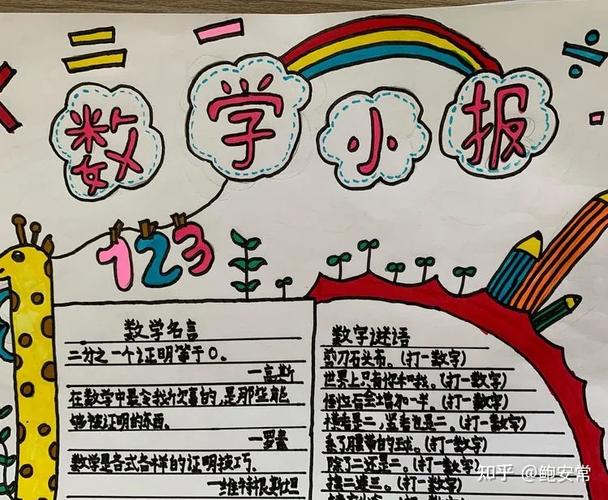 数学小报
123
数学名言
二分之一个证明等于0。
—高斯
在数学中最令我欣喜的,是那些能
够被证明的东西。
—罗素
数学是各式各样的证明技巧。
—维特根斯坦
数字谜语
剪刀石头布。(打一数字)
世界上只有你和我。(打一数字)
横看是二,竖看也是二。(打一数字)
(打一数字)
除了二还是二。(打一数字)
接二连三。(打一数字)
知乎 @鲍安常